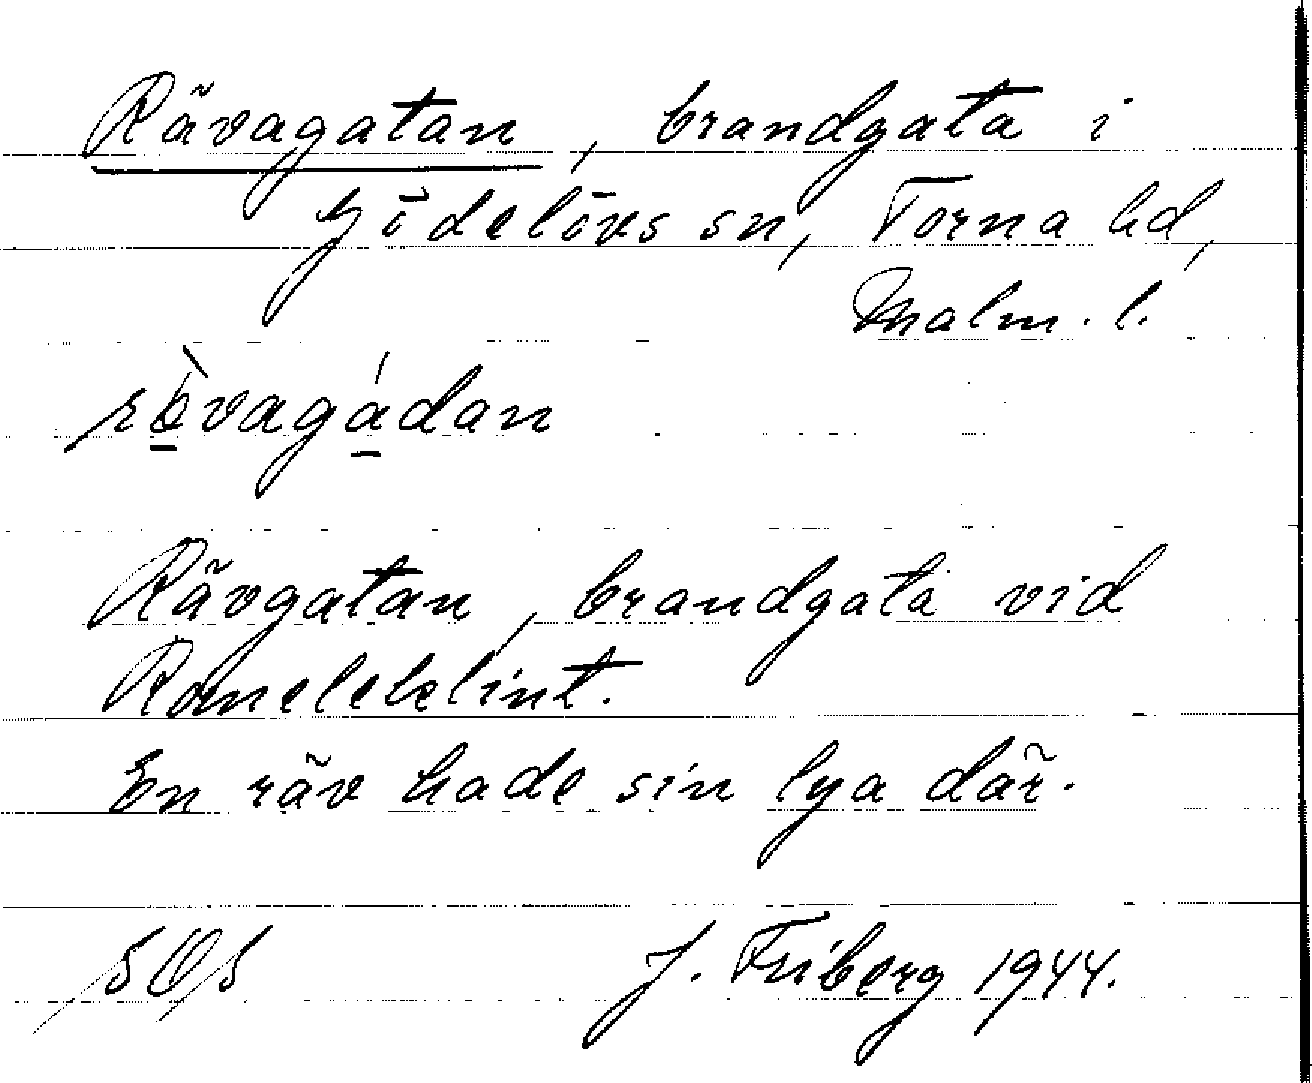 Rävagatan, brandgata i
Gödelövs sn, Torna hd,
Malm. l.
rävagádan
Rävgatan, brandgata vid
Romeleklint.
En räv hade sin lya där.
SOS J. Friberg 1944.